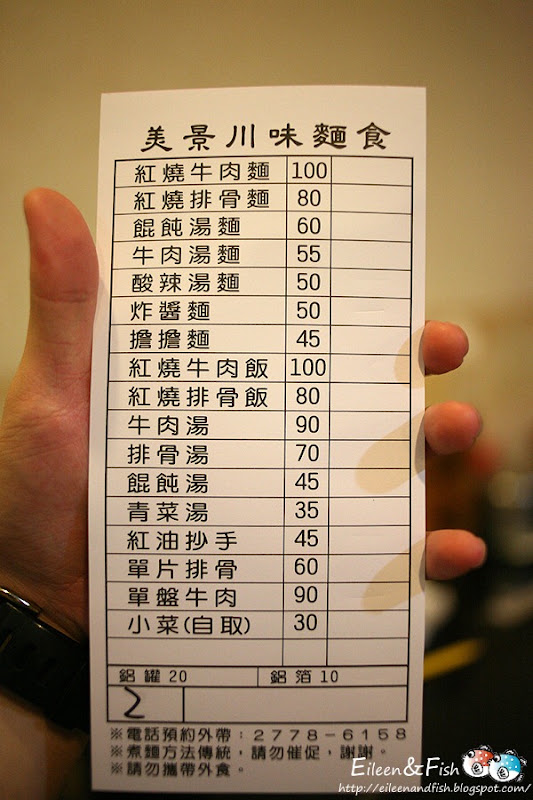 美景川味麵食
紅燒牛肉麵 100
紅燒排骨麵 80
餛飩湯麵 60
牛肉湯麵 55
酸辣湯麵 50
炸醬麵 50
擔擔麵 45
紅燒牛肉飯 100
紅燒排骨飯 80
牛肉湯 90
排骨湯 70
餛飩湯 45
青菜湯 35
紅油抄手 45
單片排骨 60
單盤牛肉 90
小菜(自取) 30
鋁罐20 鋁箔10
2
※電話預約外帶：2778-6158
※煮麵方法傳統，請勿催促，謝謝。
※請勿攜帶外食。
Eileen&Fish
http://eileenandfish.blogspot.com/